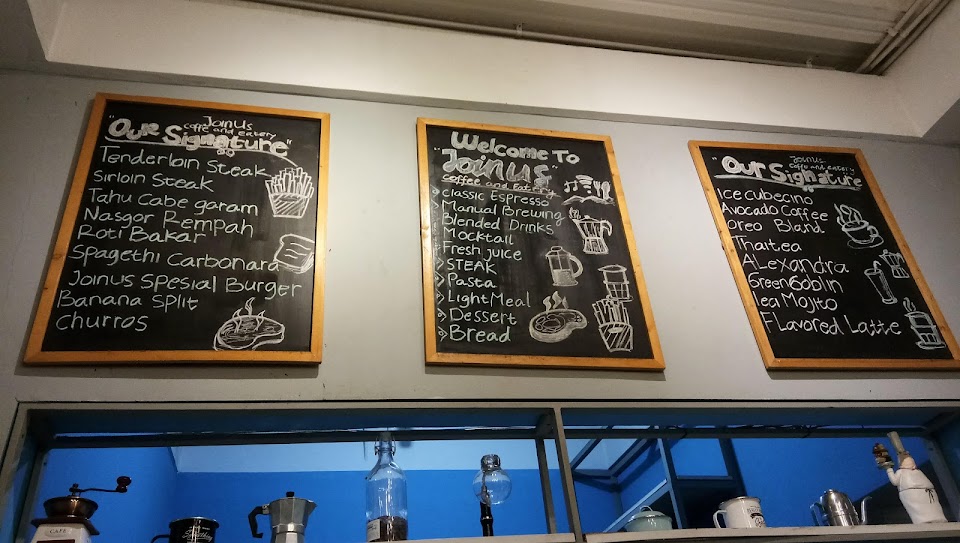 JoinUs
caffe and eatery
"Our Signature"
Tenderloin Steak
Sirloin Steak
Tahu Cabe garam
Nasgor Rempah
Roti Bakar
Spagethi Carbonara
Joinus Spesial Burger
Banana Split
Churros
Welcome To
"Joinus"
coffee and Eatery
classic Espresso
Manual Brewing
Blended Drinks
Mocktail
Fresh juice
STEAK
Pasta
Light Meal
Dessert
Bread
JoinUs
Caffe and eatery
"Our Signature"
Ice cubecino
Avocado Coffee
Oreo Bland
Thaitea
ALexandra
Green Goblin
Tea Mojito
Flavored Latte
CAFE